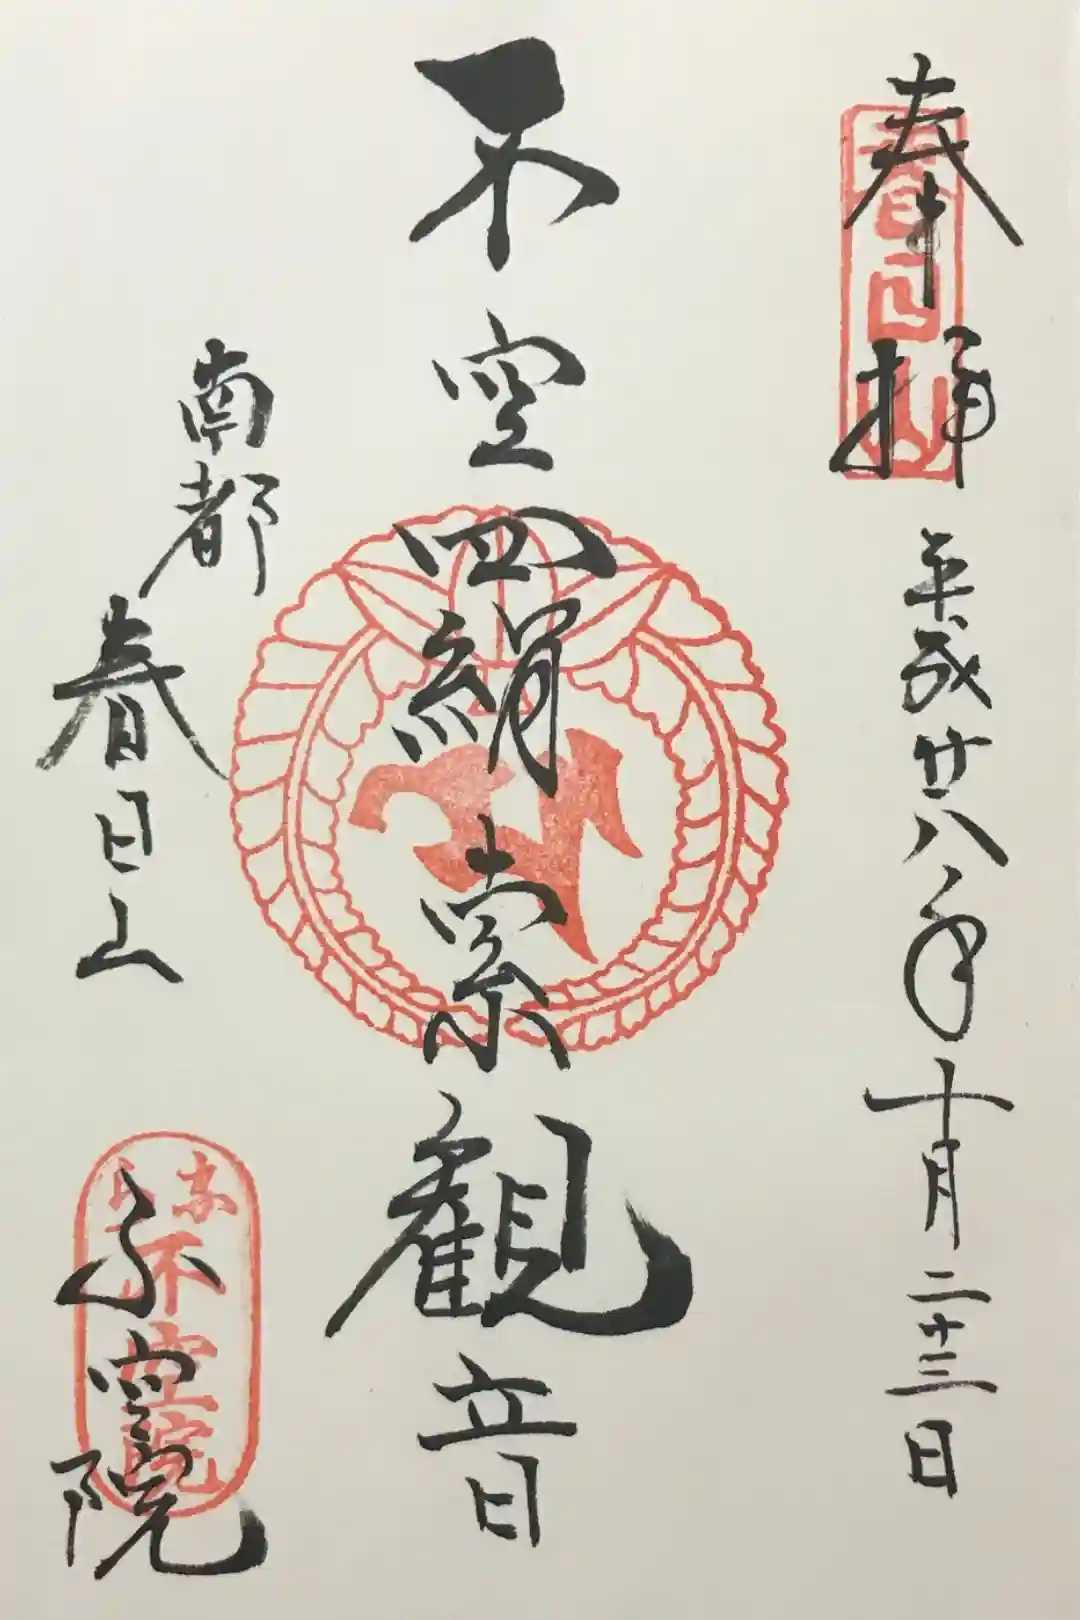 奉拝
平成廿八年十月二十三日
春日山
不空羂索観音
南都
春日山
不空院
なら
不空院